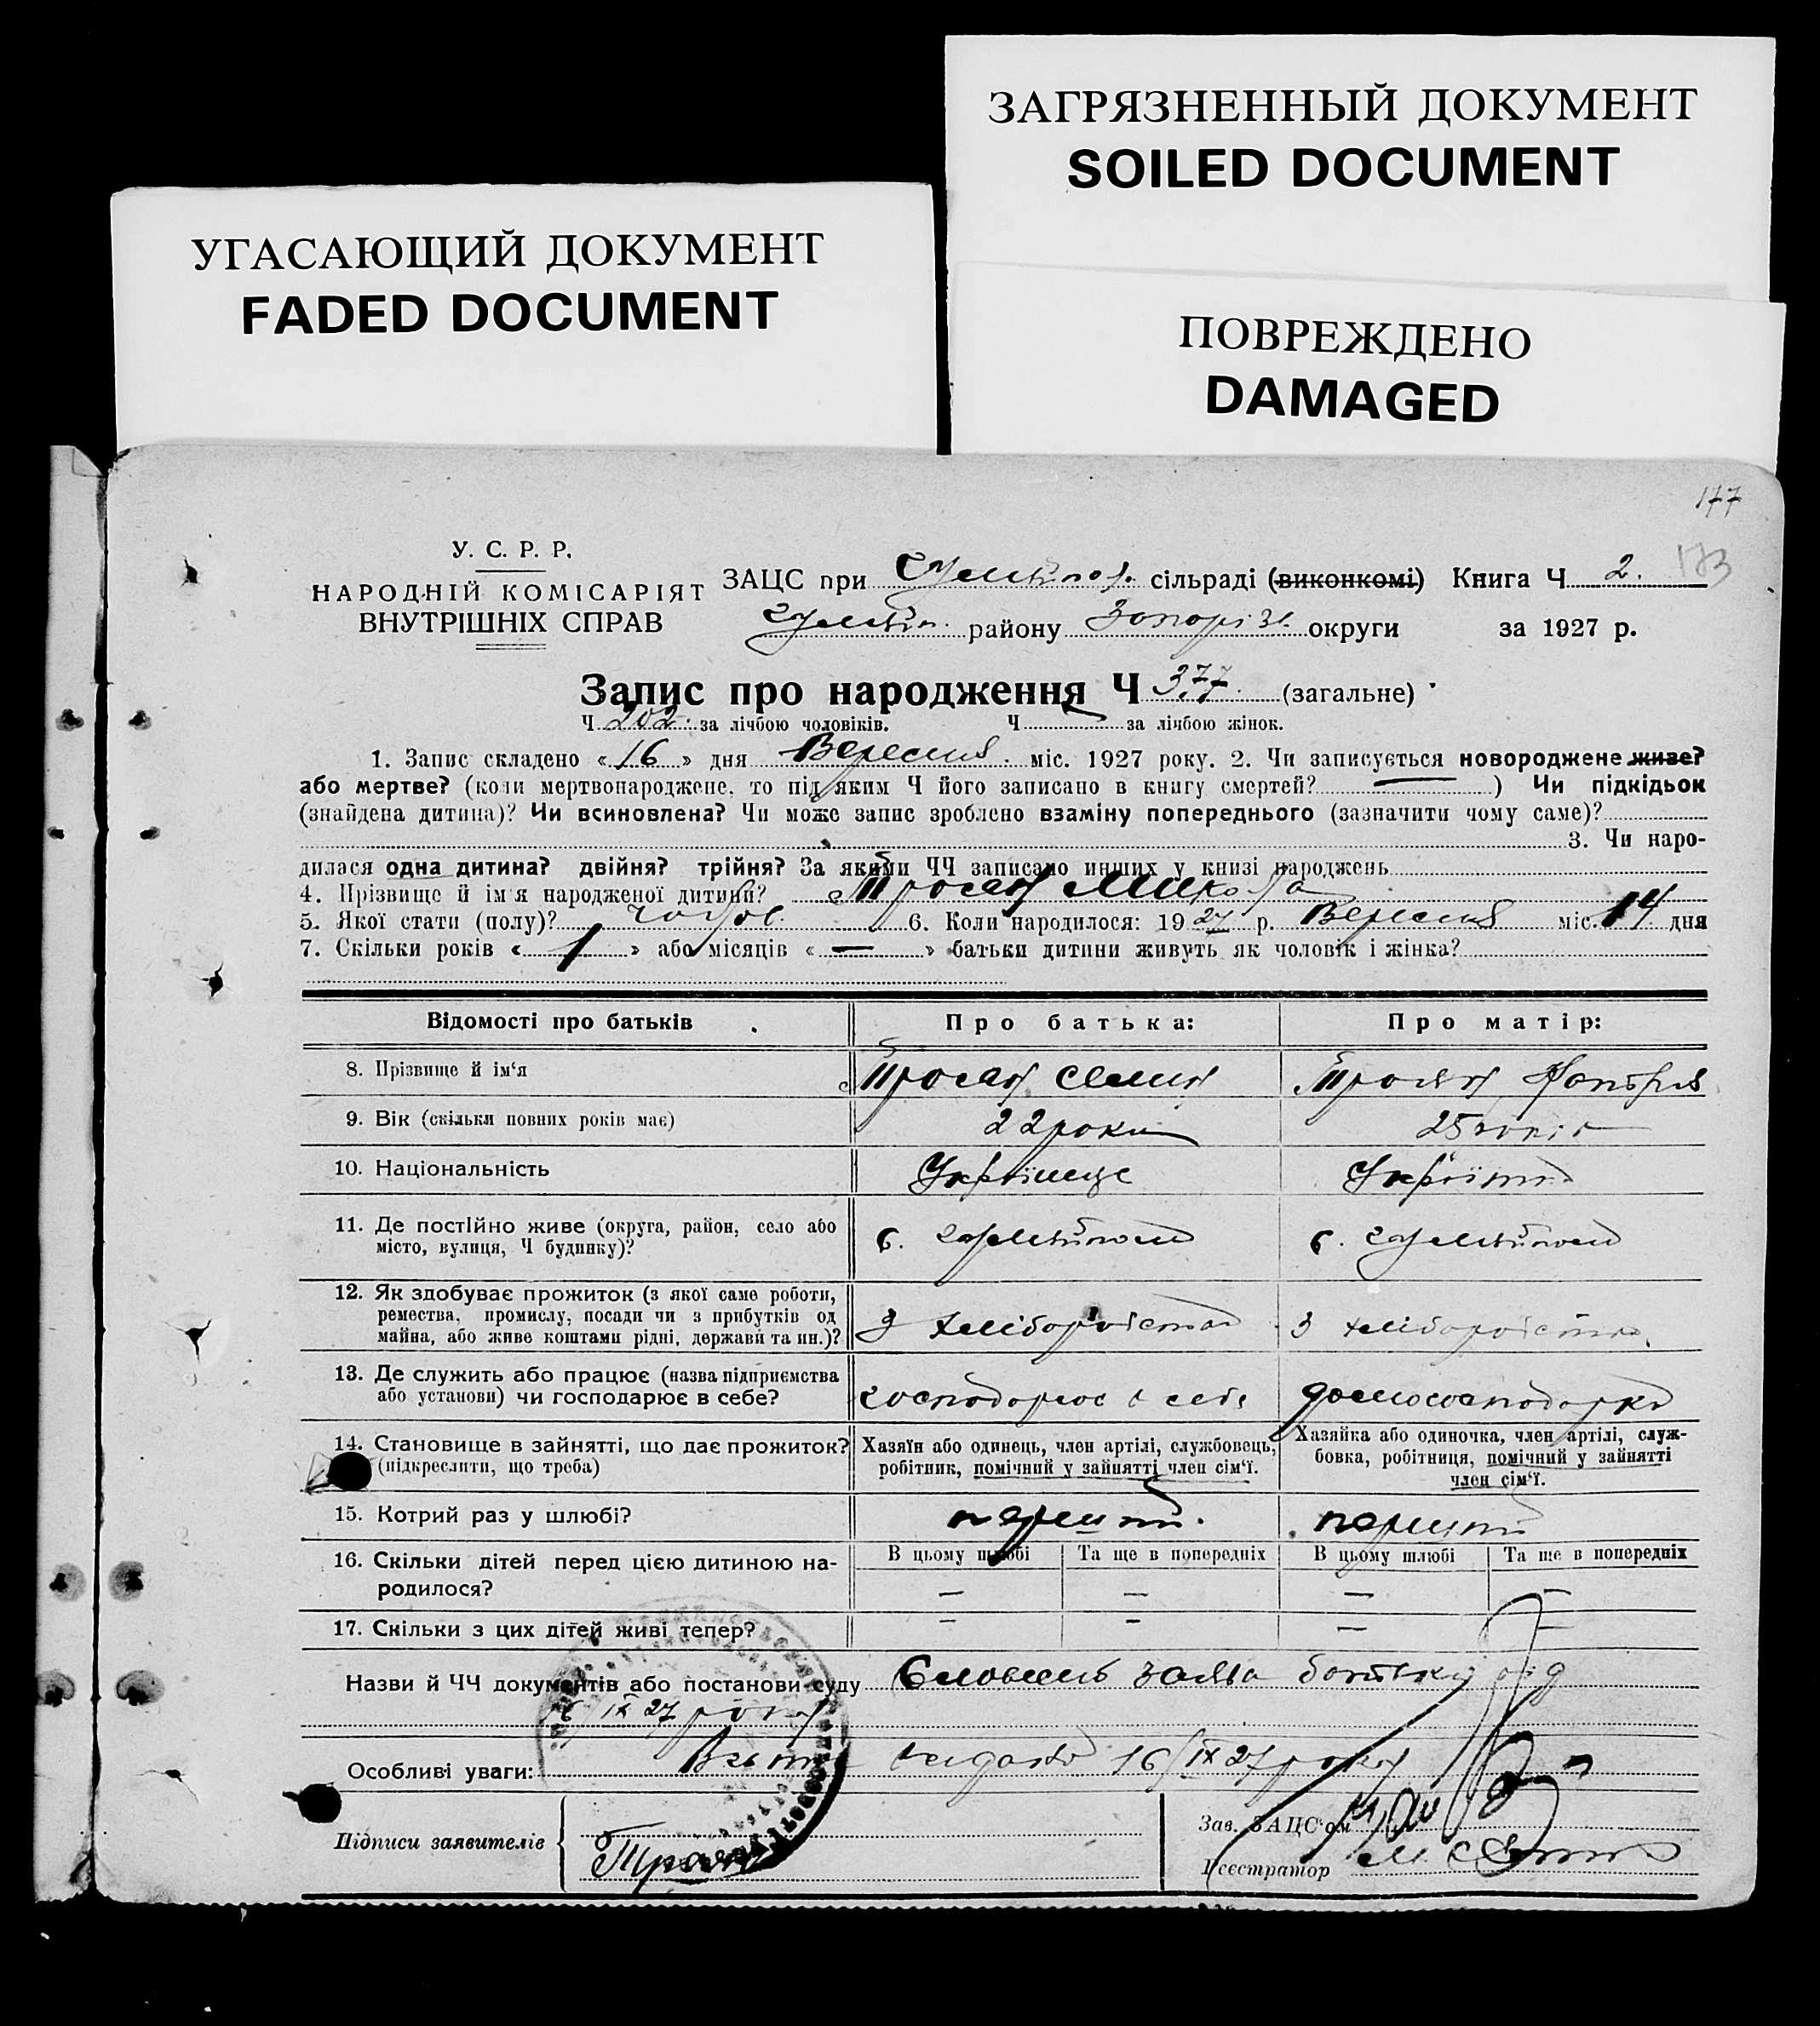 ЗАГРЯЗНЕННЫЙ ДОКУМЕНТ
SOILED DOCUMENT
УГАСАЮЩИЙ ДОКУМЕНТ
FADED DOCUMENT
ПОВРЕЖДЕНО
DAMAGED
177
173
У. С. Р. Р.
НАРОДНІЙ КОМІСАРІЯТ
ВНУТРІШНІХ СПРАВ
ЗАЦС при сільраді (виконкомі) Книга Ч 2.
району Запорізь. округи за 1927 р.
Запис про народження Ч 377. (загальне)
Ч 202. за лічбою чоловіків. Ч за лічбою жінок.
1. Запис складено «16» дня Вересня. міс. 1927 року. 2. Чи записується новороджене живе?
або мертве? (коли мертвонароджене, то під яким Ч його записано в книгу смертей? — ) Чи підкідьок
(знайдена дитина)? Чи всиновлена? Чи може запис зроблено взаміну попереднього (зазначити чому саме)?
3. Чи наро-
дилася одна дитина? двійня? трійня? За якими ЧЧ записано инших у книзі народжень
4. Прізвище й ім'я народженої дитини? Микола
5. Якої стати (полу)? чолов. 6. Коли народилося: 1927 р. Вересня міс. 14 дня
7. Скільки років «1» або місяців «—» батьки дитини живуть як чоловік і жінка?
Відомості про батьків Про батька: Про матір:
8. Прізвище й ім'я Семен
9. Вік (скільки повних років має) 22 роки 25 років
10. Національність Українець Українка
11. Де постійно живе (округа, район, село або
місто, вулиця, Ч будинку)? с. с.
12. Як здобуває прожиток (з якої саме роботи,
ремества, промислу, посади чи з прибутків од
майна, або живе коштами рідні, держави та ин.)? З хліборобства З хліборобства
13. Де служить або працює (назва підприємства
або установи) чи господарює в себе? господарює в себе домогосподарка
14. Становище в зайнятті, що дає прожиток?
(підкреслити, що треба)
Хазяїн або одинець, член артілі, службовець,
робітник, помічний у зайнятті член сім'ї.
Хазяйка або одиночка, член артілі, служ-
бовка, робітниця, помічний у зайнятті
член сім'ї.
15. Котрий раз у шлюбі? перший. перший
16. Скільки дітей перед цією дитиною на-
родилося?
В цьому шлюбі Та ще в попередніх В цьому шлюбі Та ще в попередніх
— — — —
17. Скільки з цих дітей живі тепер? — — — —
Назви й ЧЧ документів або постанови суду Словесна заява батька від
16/IX 27 року
Особливі уваги: Витяг видано 16/IX 27 року
Підписи заявителів
Зав. ЗАЦС'ом
Реєстратор